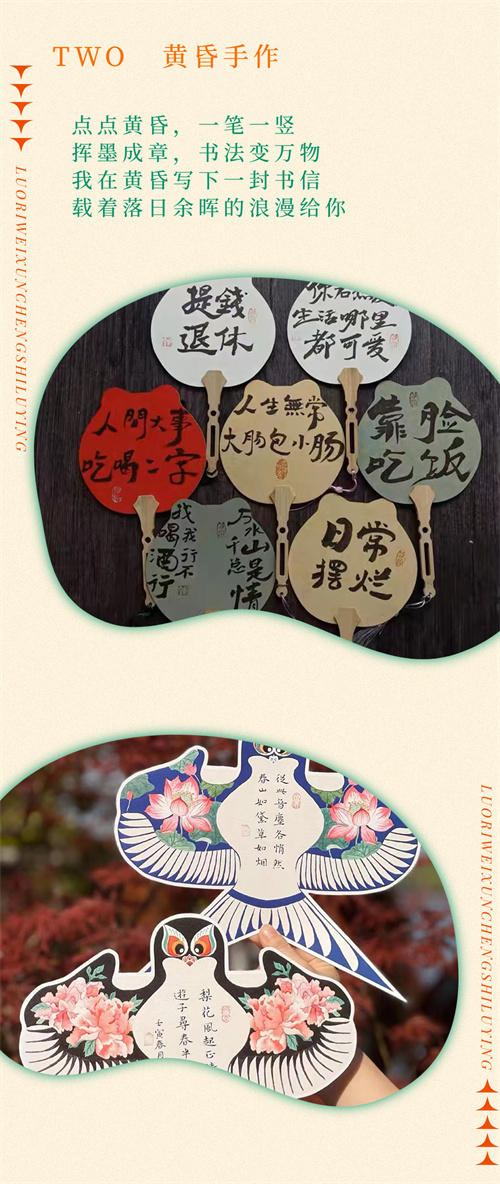 TWO 黄昏手作
点点黄昏，一笔一竖
挥墨成章，书法变万物
我在黄昏写下一封书信
载着落日余晖的浪漫给你
LUORIWEIXUNCHENGSHILUYING
提錢
退休
生活哪里
都可爱
人間大事
吃喝二字
人生無常
大肠包小肠
靠脸
吃饭
万水
千山
总是情
找我行不
喝酒行
日常
摆烂
從此音塵各悄然
春山如黛草如烟
梨花風起正
遊子尋春半
壬寅春月
LUORIWEIXUNCHENGSHILUYING